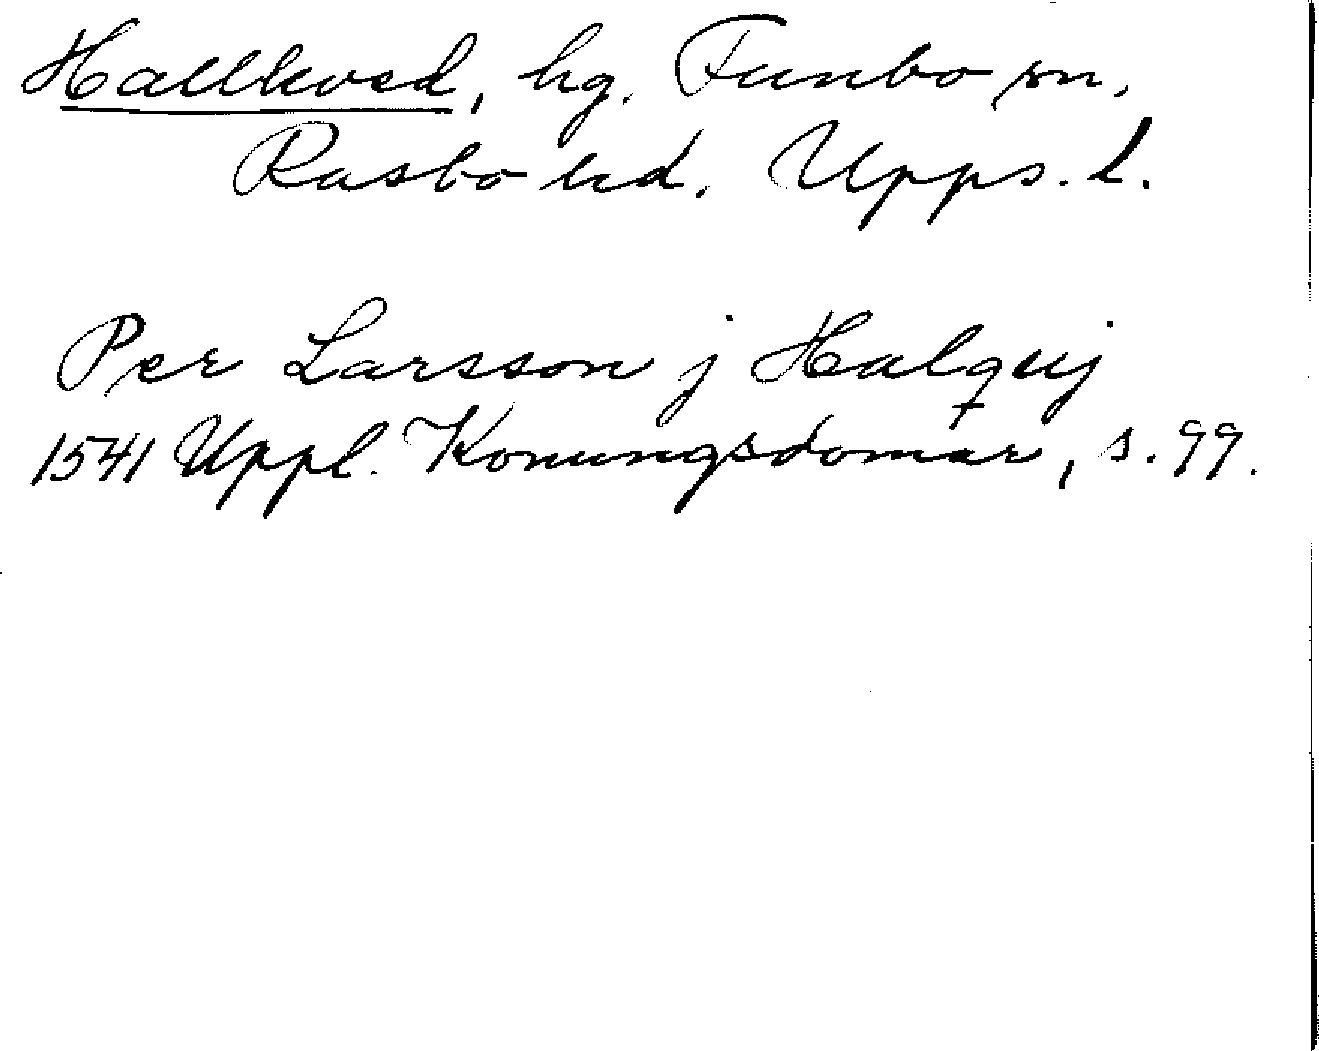 Hallkved, hg. Funbo sn,
Rasbo hd. Upps. l.
Per Larsson j Halqvij
1541 Uppl. Konungsdomar, s. 99.